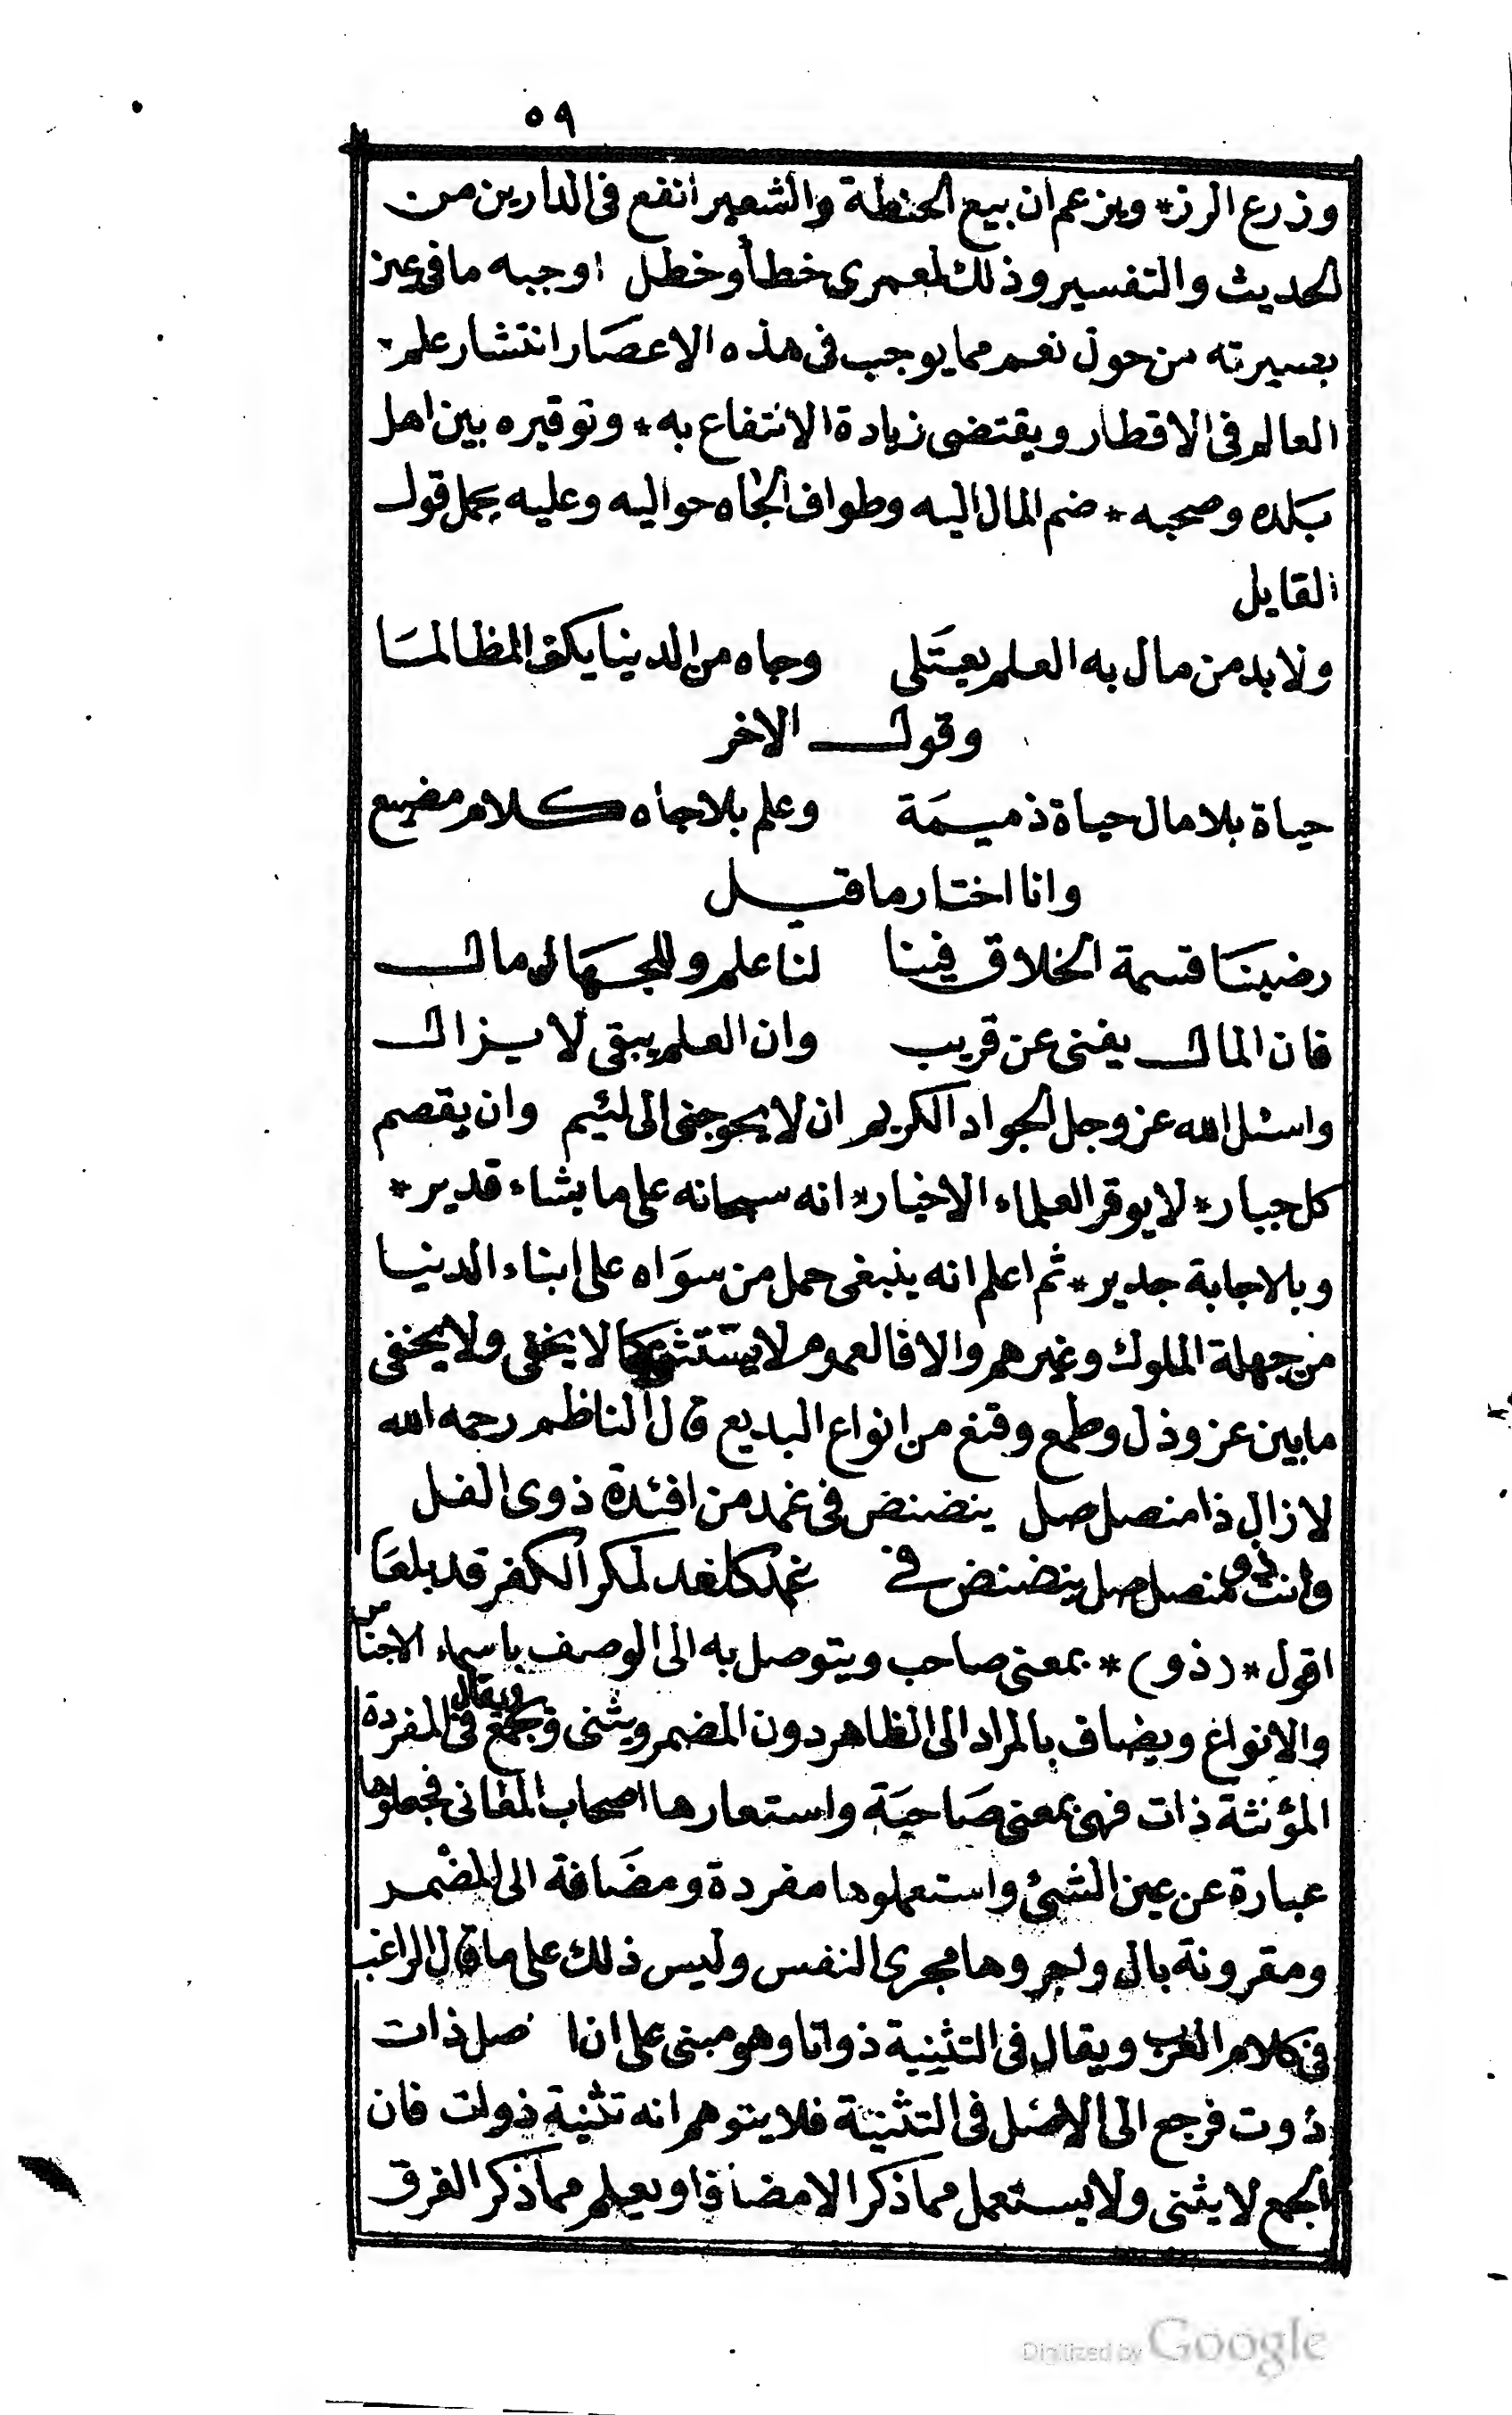 ٥٩
وزرع الرز * ويزعم ان بيع الحنطة والشعير انفع فى الدارين من
الحديث والتفسير وذلك لعمرى خطأ وخطل اوجبه ما فى عين
بصيرته من حول نعم مما يوجب فى هذه الاعصار انتشار علم *
العالم فى الاقطار ويقتضى زيادة الانتفاع به * وتوقيره بين اهل
بلده وصحبه * ضم المال اليه وطواف الجاه حواليه وعليه يحمل قول
القايل
ولا بد من مال به العلم يعتلى وجاه من الدنيا يكف المظالما
وقول الاخر
حياة بلا مال حياة ذميمة وعلم بلا جاه كلام مضيع
وانا اختار ما قيل
رضينا قسمة الخلاق فينا لنا علم وللجهال مال
فان المال يفنى عن قريب وان العلم يبقى لا يزال
واسئل الله عز وجل الجواد الكريم ان لا يحوجنى الى لئيم وان يقصم
كل جبار * لا يوقر العلماء الاخيار * انه سبحانه على ما يشاء قدير *
وبالاجابة جدير * ثم اعلم انه ينبغى حمل من سواه على ابناء الدنيا
من جهلة الملوك وغيرهم والا فالعموم لا يستثنى كما لا يخفى ولا يخفى
ما بين عز وذل وطمع وقنع من انواع البديع قال الناظم رحمه الله
لا زال ذا منصل صل ينضنض فى غمد من افئدة ذوى الغل
وانت ذو منصل صل ينضنض فى غمد كلغد لمكر الكفر قد بلعا
اقول * (ذو) * بمعنى صاحب ويتوصل به الى الوصف باسماء الاجناس
والانواع ويضاف بالمراد الى الظاهر دون المضمر ويثنى ويجمع ويقال فى المفردة
المؤنثة ذات فهى بمعنى صاحبة واستعارها اصحاب المعانى فجعلوها
عبارة عن عين الشئ واستعملوها مفردة ومضافة الى المضمر
ومقرونة بال واجروها مجرى النفس وليس ذلك على ما قال الراغب
فى كلام العرب ويقال فى التثنية ذواتا وهو مبنى على ان اصل ذات
ذوت فرجع الى الاصل فى التثنية فلا يتوهم انه تثنية ذوات فان
الجمع لا يثنى ولا يستعمل مما ذكر الا مضافا ويعلم مما ذكر الفرق
Digitized by Google